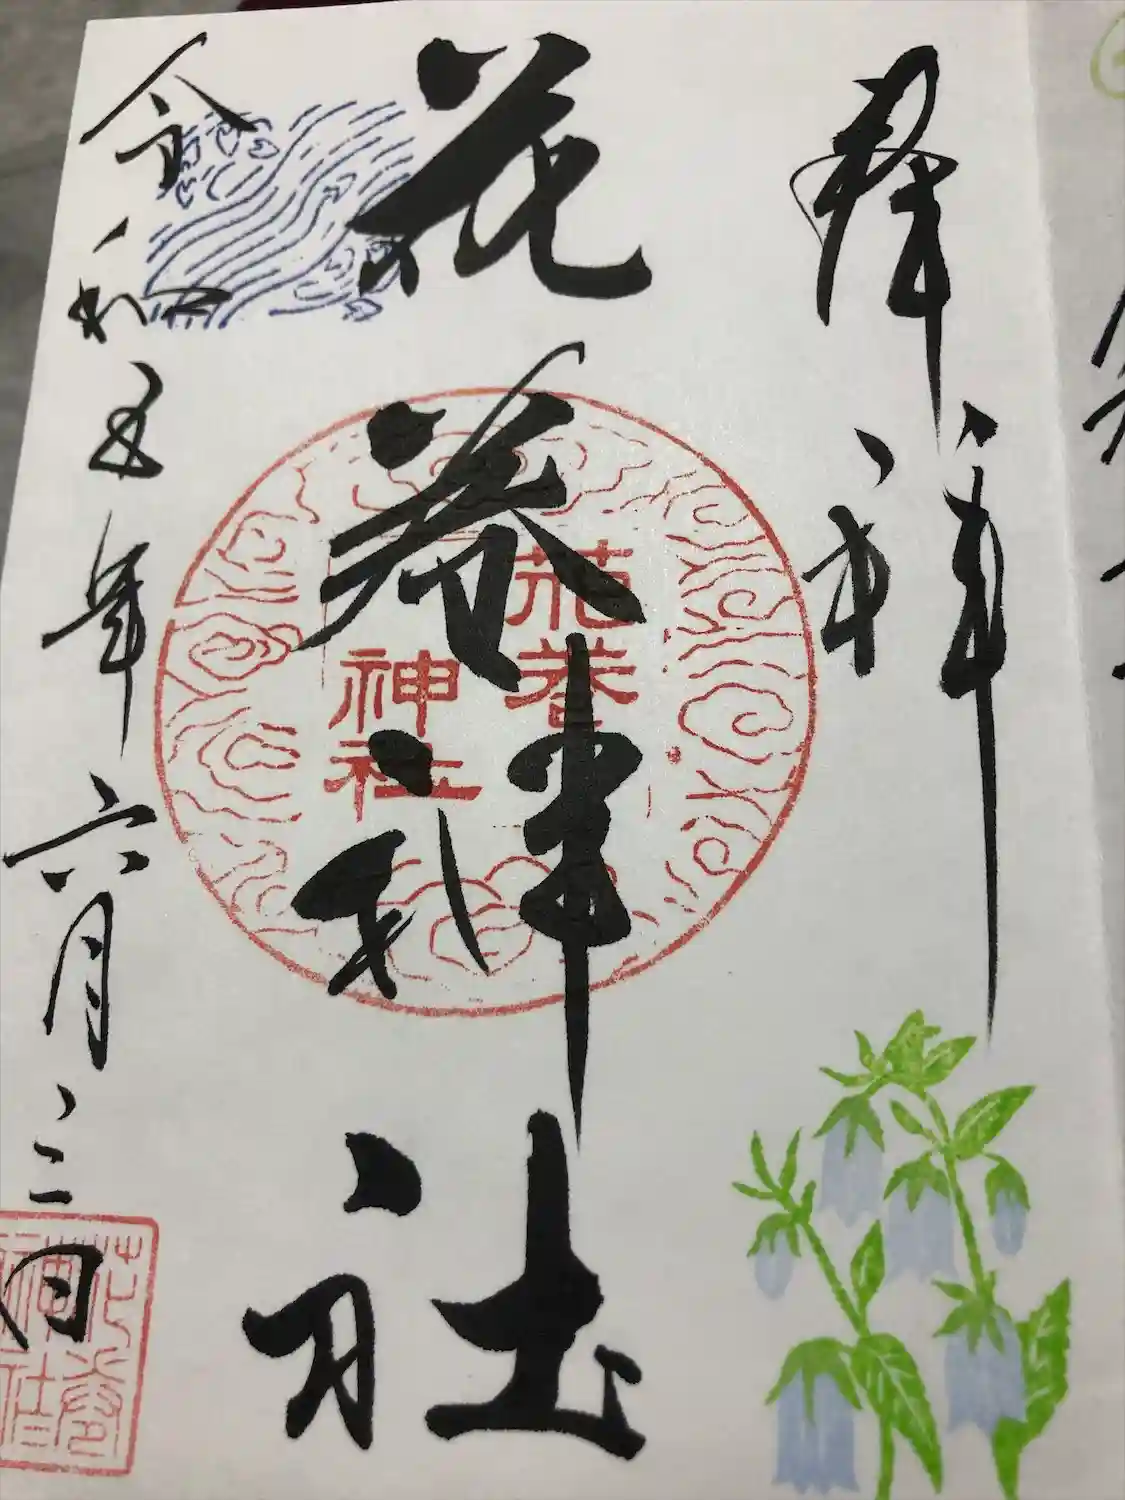 奉拝
花巻神社
花巻
神社
令和五年六月三日
花巻
神社